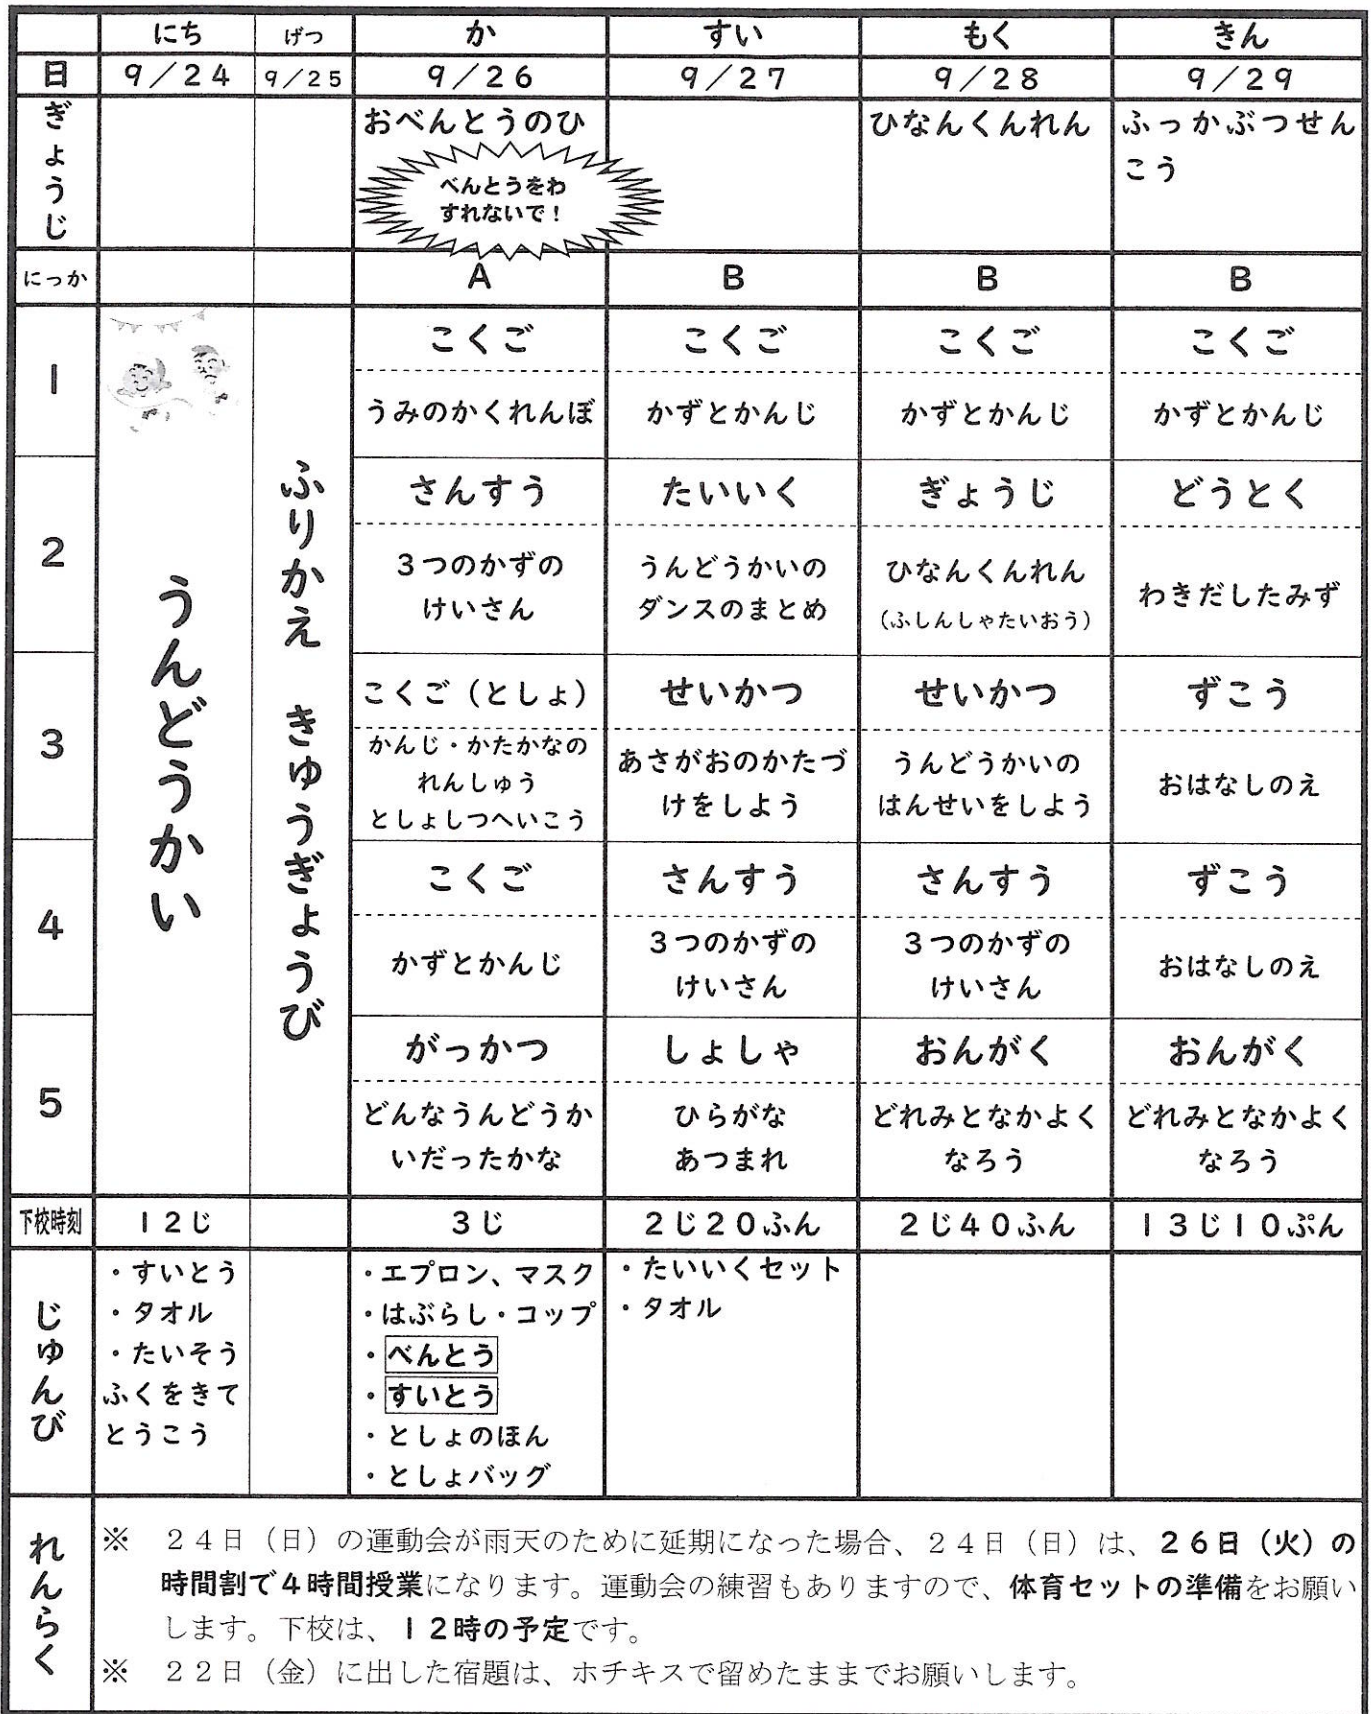 にち げつ か すい もく きん
日 9／24 9／25 9／26 9／27 9／28 9／29
ぎょうじ
おべんとうのひ
べんとうをわ
すれないで！
ひなんくんれん
ふっかぶつせん
こう
にっか A B B B
うんどうかい
ふりかえ　きゅうぎょうび
1
こくご こくご こくご こくご
うみのかくれんぼ かずとかんじ かずとかんじ かずとかんじ
2
さんすう たいいく ぎょうじ どうとく
3つのかずの
けいさん
うんどうかいの
ダンスのまとめ
ひなんくんれん
（ふしんしゃたいおう）
わきだしたみず
3
こくご（としょ） せいかつ せいかつ ずこう
かんじ・かたかなの
れんしゅう
としょしつへいこう
あさがおのかたづ
けをしよう
うんどうかいの
はんせいをしよう
おはなしのえ
4
こくご さんすう さんすう ずこう
かずとかんじ
3つのかずの
けいさん
3つのかずの
けいさん
おはなしのえ
5
がっかつ しょしゃ おんがく おんがく
どんなうんどうか
いだったかな
ひらがな
あつまれ
どれみとなかよく
なろう
どれみとなかよく
なろう
下校時刻 12じ 3じ 2じ20ふん 2じ40ふん 13じ10ぷん
じゅんび
・すいとう
・タオル
・たいそう
ふくをきて
とうこう
・エプロン、マスク
・はぶらし・コップ
・べんとう
・すいとう
・としょのほん
・としょバッグ
・たいいくセット
・タオル
れんらく
※　24日（日）の運動会が雨天のために延期になった場合、24日（日）は、26日（火）の
時間割で4時間授業になります。運動会の練習もありますので、体育セットの準備をお願い
します。下校は、12時の予定です。
※　22日（金）に出した宿題は、ホチキスで留めたままでお願いします。